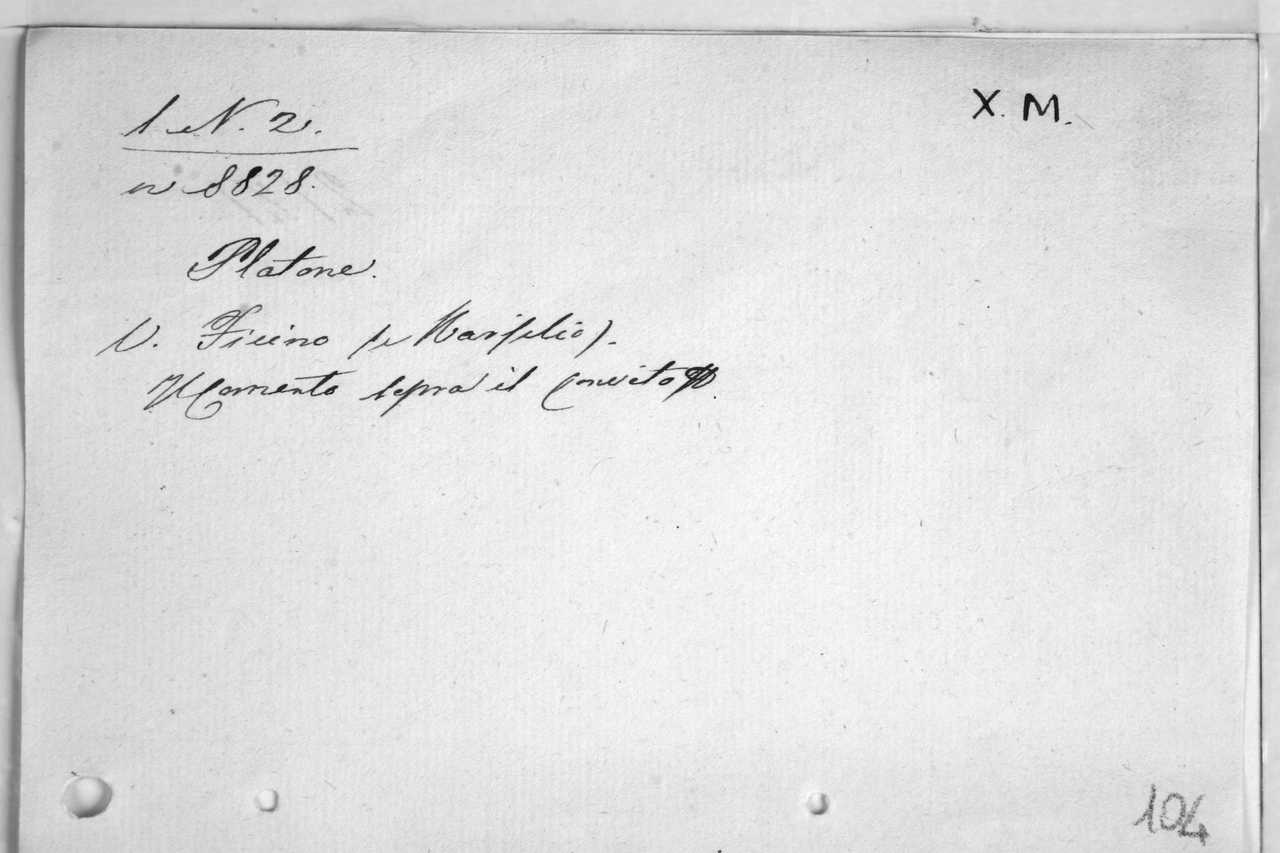 1 N. 2.
X. M.
n 8828.
Platone.
V. Ficino (Marsilio).
Comento sopra il Convito
104